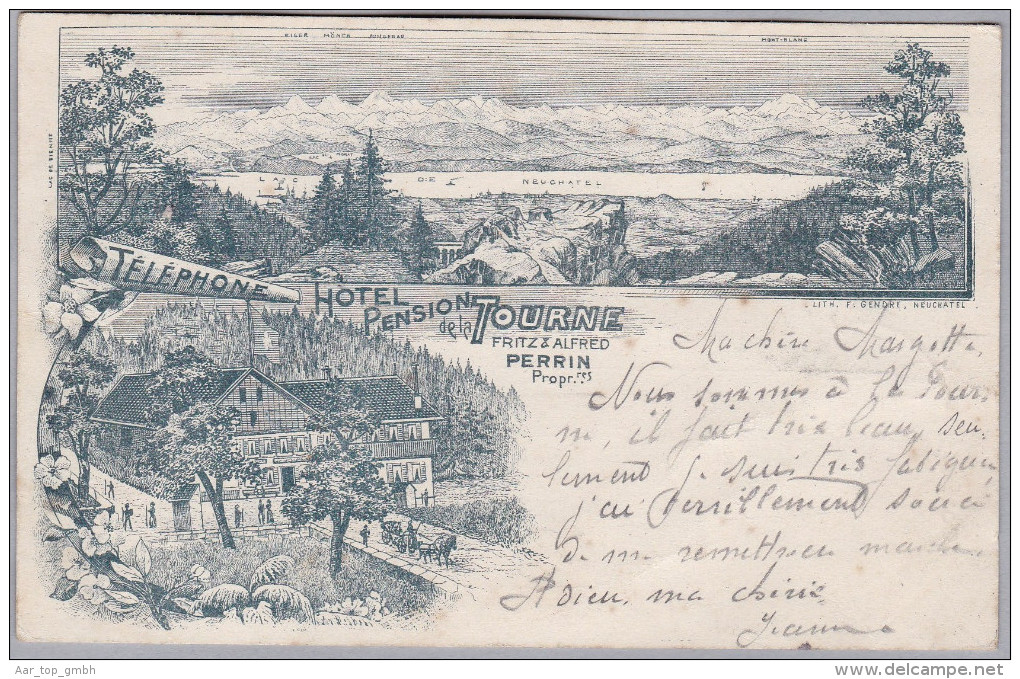 EIGER MÖNCH JUNGFRAU
MONT-BLANC
LAC DE BIENNE
LAC DE NEUCHATEL
TÉLÉPHONE
HÔTEL
PENSION
de la TOURNE
FRITZ & ALFRED
PERRIN
Propr.res
LITH. F. GENDRE, NEUCHATEL
Ma chère Margotte,
Nous sommes à la Tour-
ne, il fait très beau, seu-
lement je suis très fatiguée
j'ai terrillement
de me remettre en marche.
Adieu, ma chérie
Jeanne
Aar_top_gmbh
www.delcampe.net